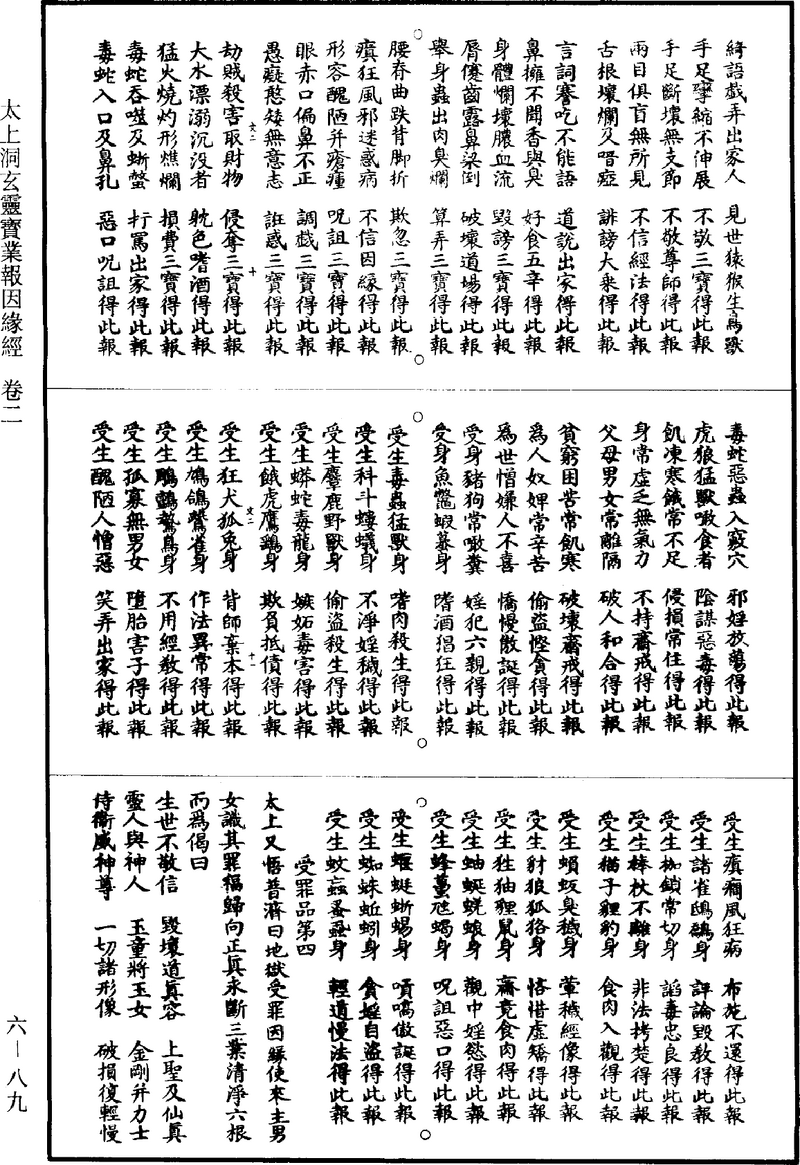 太上洞玄靈寶業報因緣經　卷二
綺語戲弄出家人　見世猿猴生鳥獸
手足攣縮不伸展　不敬三寶得此報
手足斷壞無支節　不敬尊師得此報
兩目俱盲無所見　不信經法得此報
舌根壞爛及喑瘂　誹謗大乘得此報
言詞謇吃不能語　道說出家得此報
鼻擁不聞香與臭　好食五辛得此報
身體爛壞膿血流　毀謗三寶得此報
脣僂齒露鼻梁倒　破壞道場得此報
舉身蟲出肉臭爛　算弄三寶得此報
腰脊曲跌背脚折　欺忽三寶得此報
瘨狂風邪迷惑病　不信因緣得此報
形容醜陋并瘡瘇　呪詛三寶得此報
眼赤口偏鼻不正　調戲三寶得此報
愚癡憨矮無意志　誑惑三寶得此報
劫賊殺害取財物　侵奪三寶得此報
大水漂溺沉没者　躭色嗜酒得此報
猛火燒灼形燋爛　損費三寶得此報
毒蛇吞噬及蜥螫　打罵出家得此報
毒蛇入口及鼻孔　惡口呪詛得此報
毒蛇惡蟲入竅穴　邪婬放蕩得此報
虎狼猛獸噉食者　陰謀惡毒得此報
飢凍寒餓常不足　侵損常住得此報
身常虛乏無氣力　不持齋戒得此報
父母男女常離隔　破人和合得此報
貧窮困苦常飢寒　破壞齋戒得此報
爲人奴婢常辛苦　偷盜慳貪得此報
為世憎嫌人不喜　憍慢散誕得此報
受身豬狗常噉糞　婬犯六親得此報
受身魚鼈蝦蟇身　嗜酒猖狂得此報
受生毒蟲猛獸身　嗜肉殺生得此報
受生科斗螻蟻身　不淨婬穢得此報
受生麞鹿野獸身　偷盜殺生得此報
受生蟒蛇毒龍身　嫉妬毒害得此報
受生餓虎鷹鷂身　欺負抵債得此報
受生狂犬狐兔身　背師棄本得此報
受生鳩鴿鸎雀身　作法異常得此報
受生鵰鷂鷙鳥身　不用經教得此報
受生孤寡無男女　墮胎害子得此報
受生醜陋人憎惡　笑弄出家得此報
受生瘨癇風狂病　布施不還得此報
受生諸雀鴟鷂身　評論毀教得此報
受生枷鎖常切身　謟毒忠良得此報
受生棒杖不離身　非法拷楚得此報
受生猫子貍豹身　食肉入觀得此報
受生蝟蚖臭穢身　葷穢經像得此報
受生豺狼狐狢身　悋惜虛矯得此報
受生狌狖貍鼠身　齋竟食肉得此報
受生蚰蜒蜣蜋身　觀中婬慾得此報
受生蜂蠆虺蝎身　呪詛惡口得此報
受生蝘蜓蜥蜴身　嗔嗃傲誕得此報
受生蜘蛛蚯蚓身　貪婬自盜得此報
受生蚊䖟蚤虱身　輕道慢法得此報
受罪品第四
太上又語普濟曰地獄受罪因緣使來生男
女識其罪福歸向正真永斷三業清淨六根
而爲偈曰
生世不敬信　毀壞道真容　上聖及仙真
靈人與神人　玉童將玉女　金剛并力士
侍衛威神尊　一切諸形像　破損復輕慢
六—八九